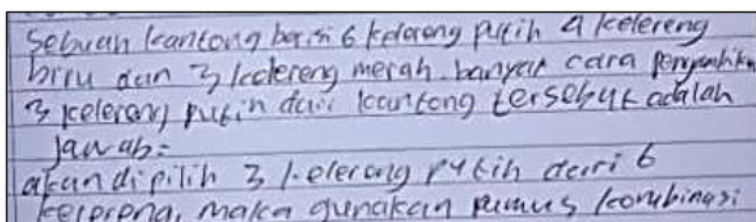 Sebuah kantong berisi 6 kelereng putih 4 kelereng
biru dan 3 kelereng merah. banyak cara pengambilan
3 kelereng putih dari kantong tersebut adalah
Jawab:
akan dipilih 3 kelereng putih dari 6
kelereng, maka gunakan rumus kombinasi